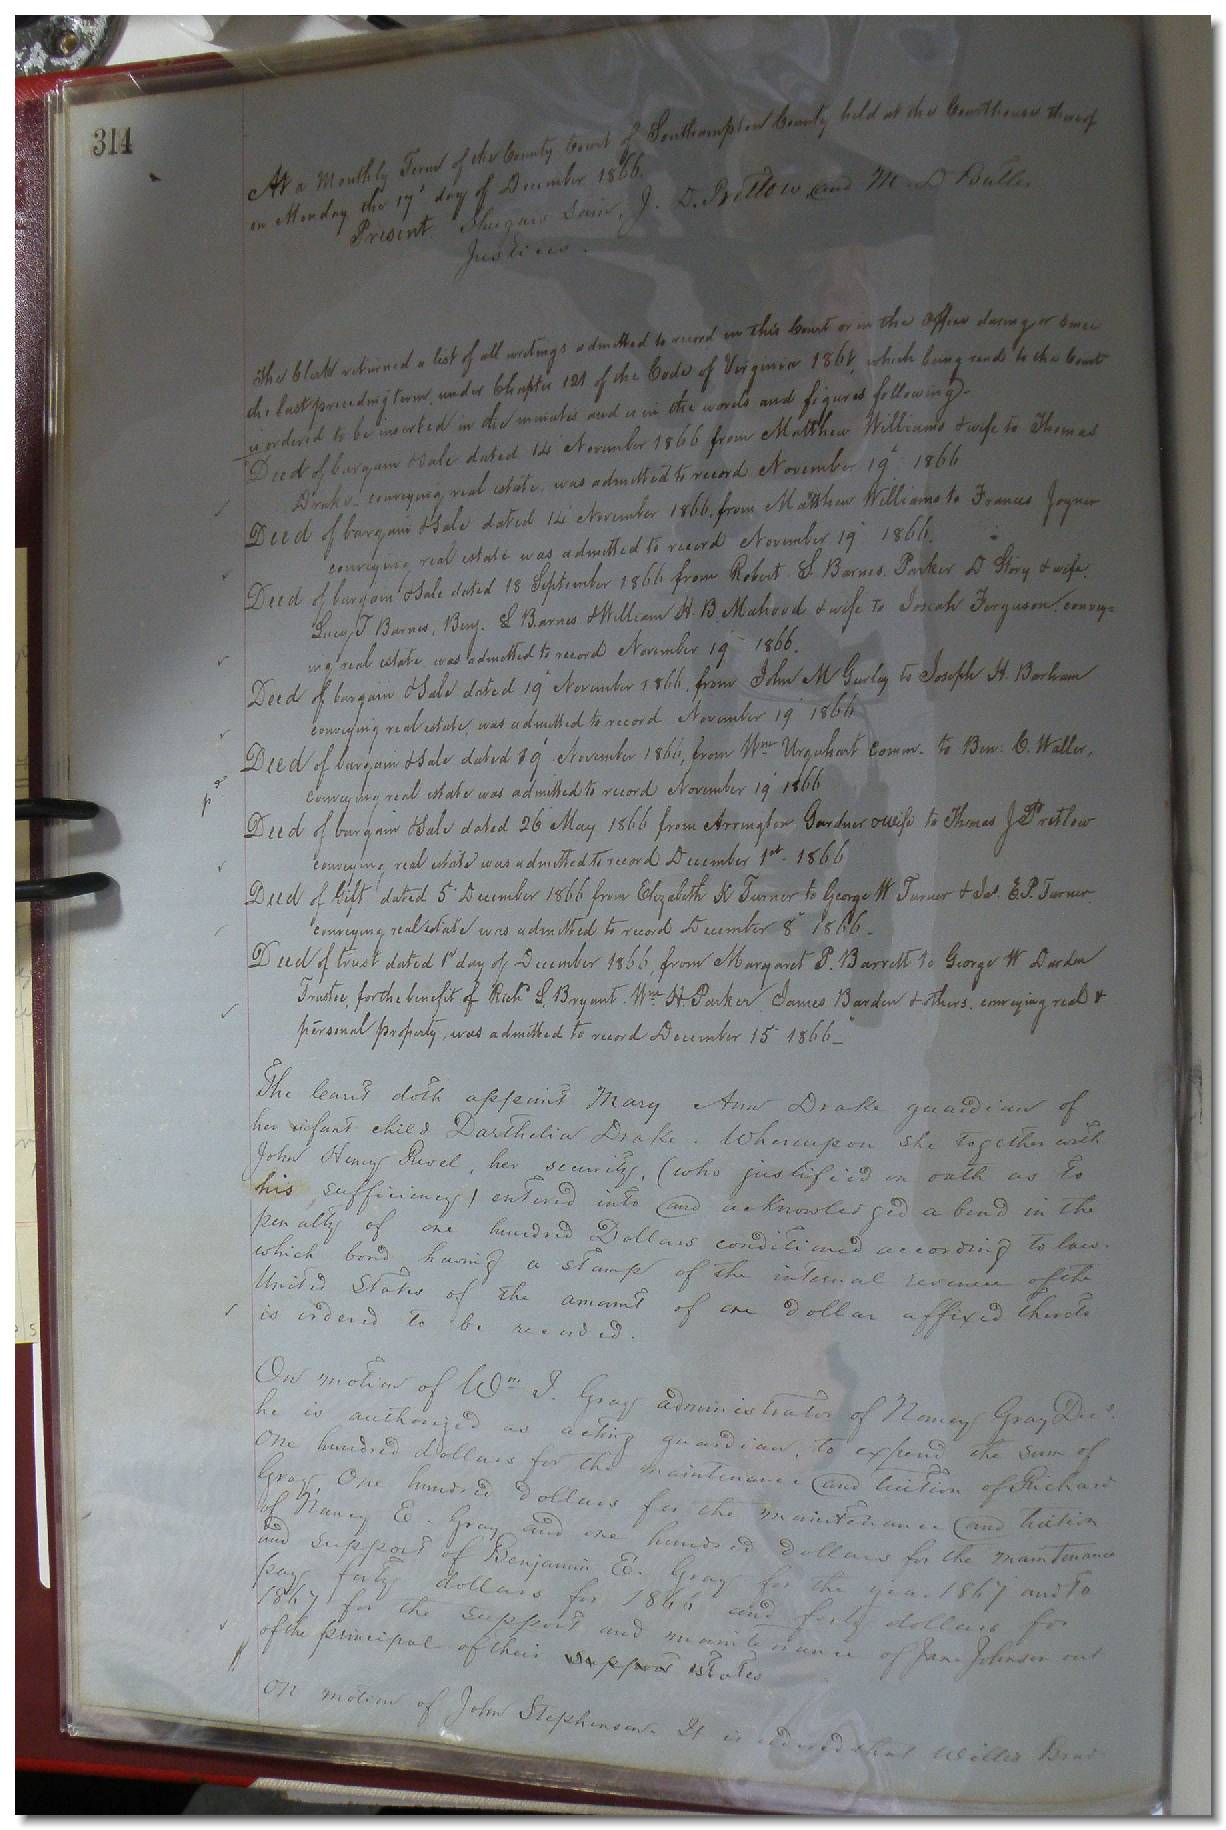 314
At a Monthly Term of the County Court of Southampton County held at the Courthouse thereof
on Monday the 17th day of December 1866.
Present. J. D. Pretlow and M. D Butler
Justices.
The Clerk returned a list of all writings admitted to record in this Court or in the Office during or since
the last preceding term, under Chapter 121 of the Code of Virginia which being read to the Court
is ordered to be inserted in the minutes and is in the words and figures following.
Deed of bargain & Sale dated 14 November 1866 from Matthew Williams & wife to Thomas
Drake conveying real estate was admitted to record November 19 1866
Deed of bargain & Sale dated 14 November 1866, from Matthew Williams to Frances Joyner
conveying real estate was admitted to record November 19 1866.
Deed of bargain & Sale dated 18 September 1866 from Robert S. Barnes, Parker D Story & wife
Lucy T Barnes, Benj. S Barnes & William H. B. Mahood & wife to Josiah Ferguson, convey=
ing real estate was admitted to record November 19 1866.
Deed of bargain & Sale dated 19 November 1866, from John M Gurley to Joseph H. Barham
conveying real estate, was admitted to record November 19 1866
Deed of bargain & Sale dated 19 November 1866, from Wm Urquhart Comm. to Ben: C. Waller,
conveying real estate was admitted to record November 19 1866
Deed of bargain & Sale dated 26 May 1866 from Arrington Gardner & wife to Thomas J Pretlow
conveying real estate was admitted to record December 1st 1866
Deed of Gift dated 5 December 1866 from Elizabeth K Turner to George W Turner & Jas. E. P. Turner
conveying real estate was admitted to record December 8 1866.
Deed of trust dated 1st day of December 1866, from Margaret P. Barrett to George W Darden
Trustee, for the benefit of Richd S. Bryant, Wm H Parker, James Barden & others, conveying real &
personal property, was admitted to record December 15 1866_
The Court doth appoint Mary Ann Drake guardian of
her infant child Darthelia Drake. Whereupon she together with
John Henry her security, (who justified on oath as to
his sufficiency) entered into and acknowledged a bond in the
penalty of one hundred Dollars conditioned according to law.
which bond having a stamp of the internal revenue of the
United States of the amount of one dollar affixed thereto
is ordered to be recorded.
On motion of Wm J. Gray administrator of Nancy Gray Decd.
he is authorized as acting guardian, to expend the sum of
one hundred dollars for the maintenance and tuition of Richard
Gray, One hundred dollars for the maintenance and tuition
of Nancy E. Gray and one hundred dollars for the maintenance
and support of Benjamin E. Gray for the year 1867 and to
pay forty dollars for 1866 and forty dollars for
1867 for the support and maintenance of Jane Johnson out
of the principal of their support estates
On motion of John Stephenson. It is ordered that Willis